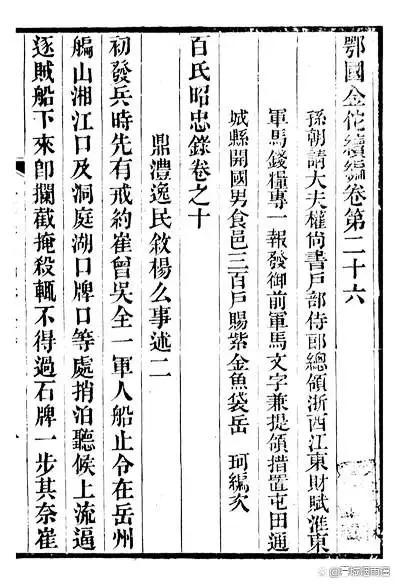 鄂國金佗續編卷第二十六
孫朝請大夫權尚書戶部侍郎總領浙西江東財賦淮東
軍馬錢糧專一報發御前軍馬文字兼提領措置屯田通
城縣開國男食邑三百戶賜紫金魚袋岳 珂編次
百氏昭忠錄卷之十
鼎澧逸民敘楊么事述二
初發兵時先有戒約崔曾吳全一軍人船止令在岳州
艑山湘江口及洞庭湖口牌口等處捎泊聽候上流逼
逐賊船下來卽攔截掩殺輒不得過石牌一步其奈崔